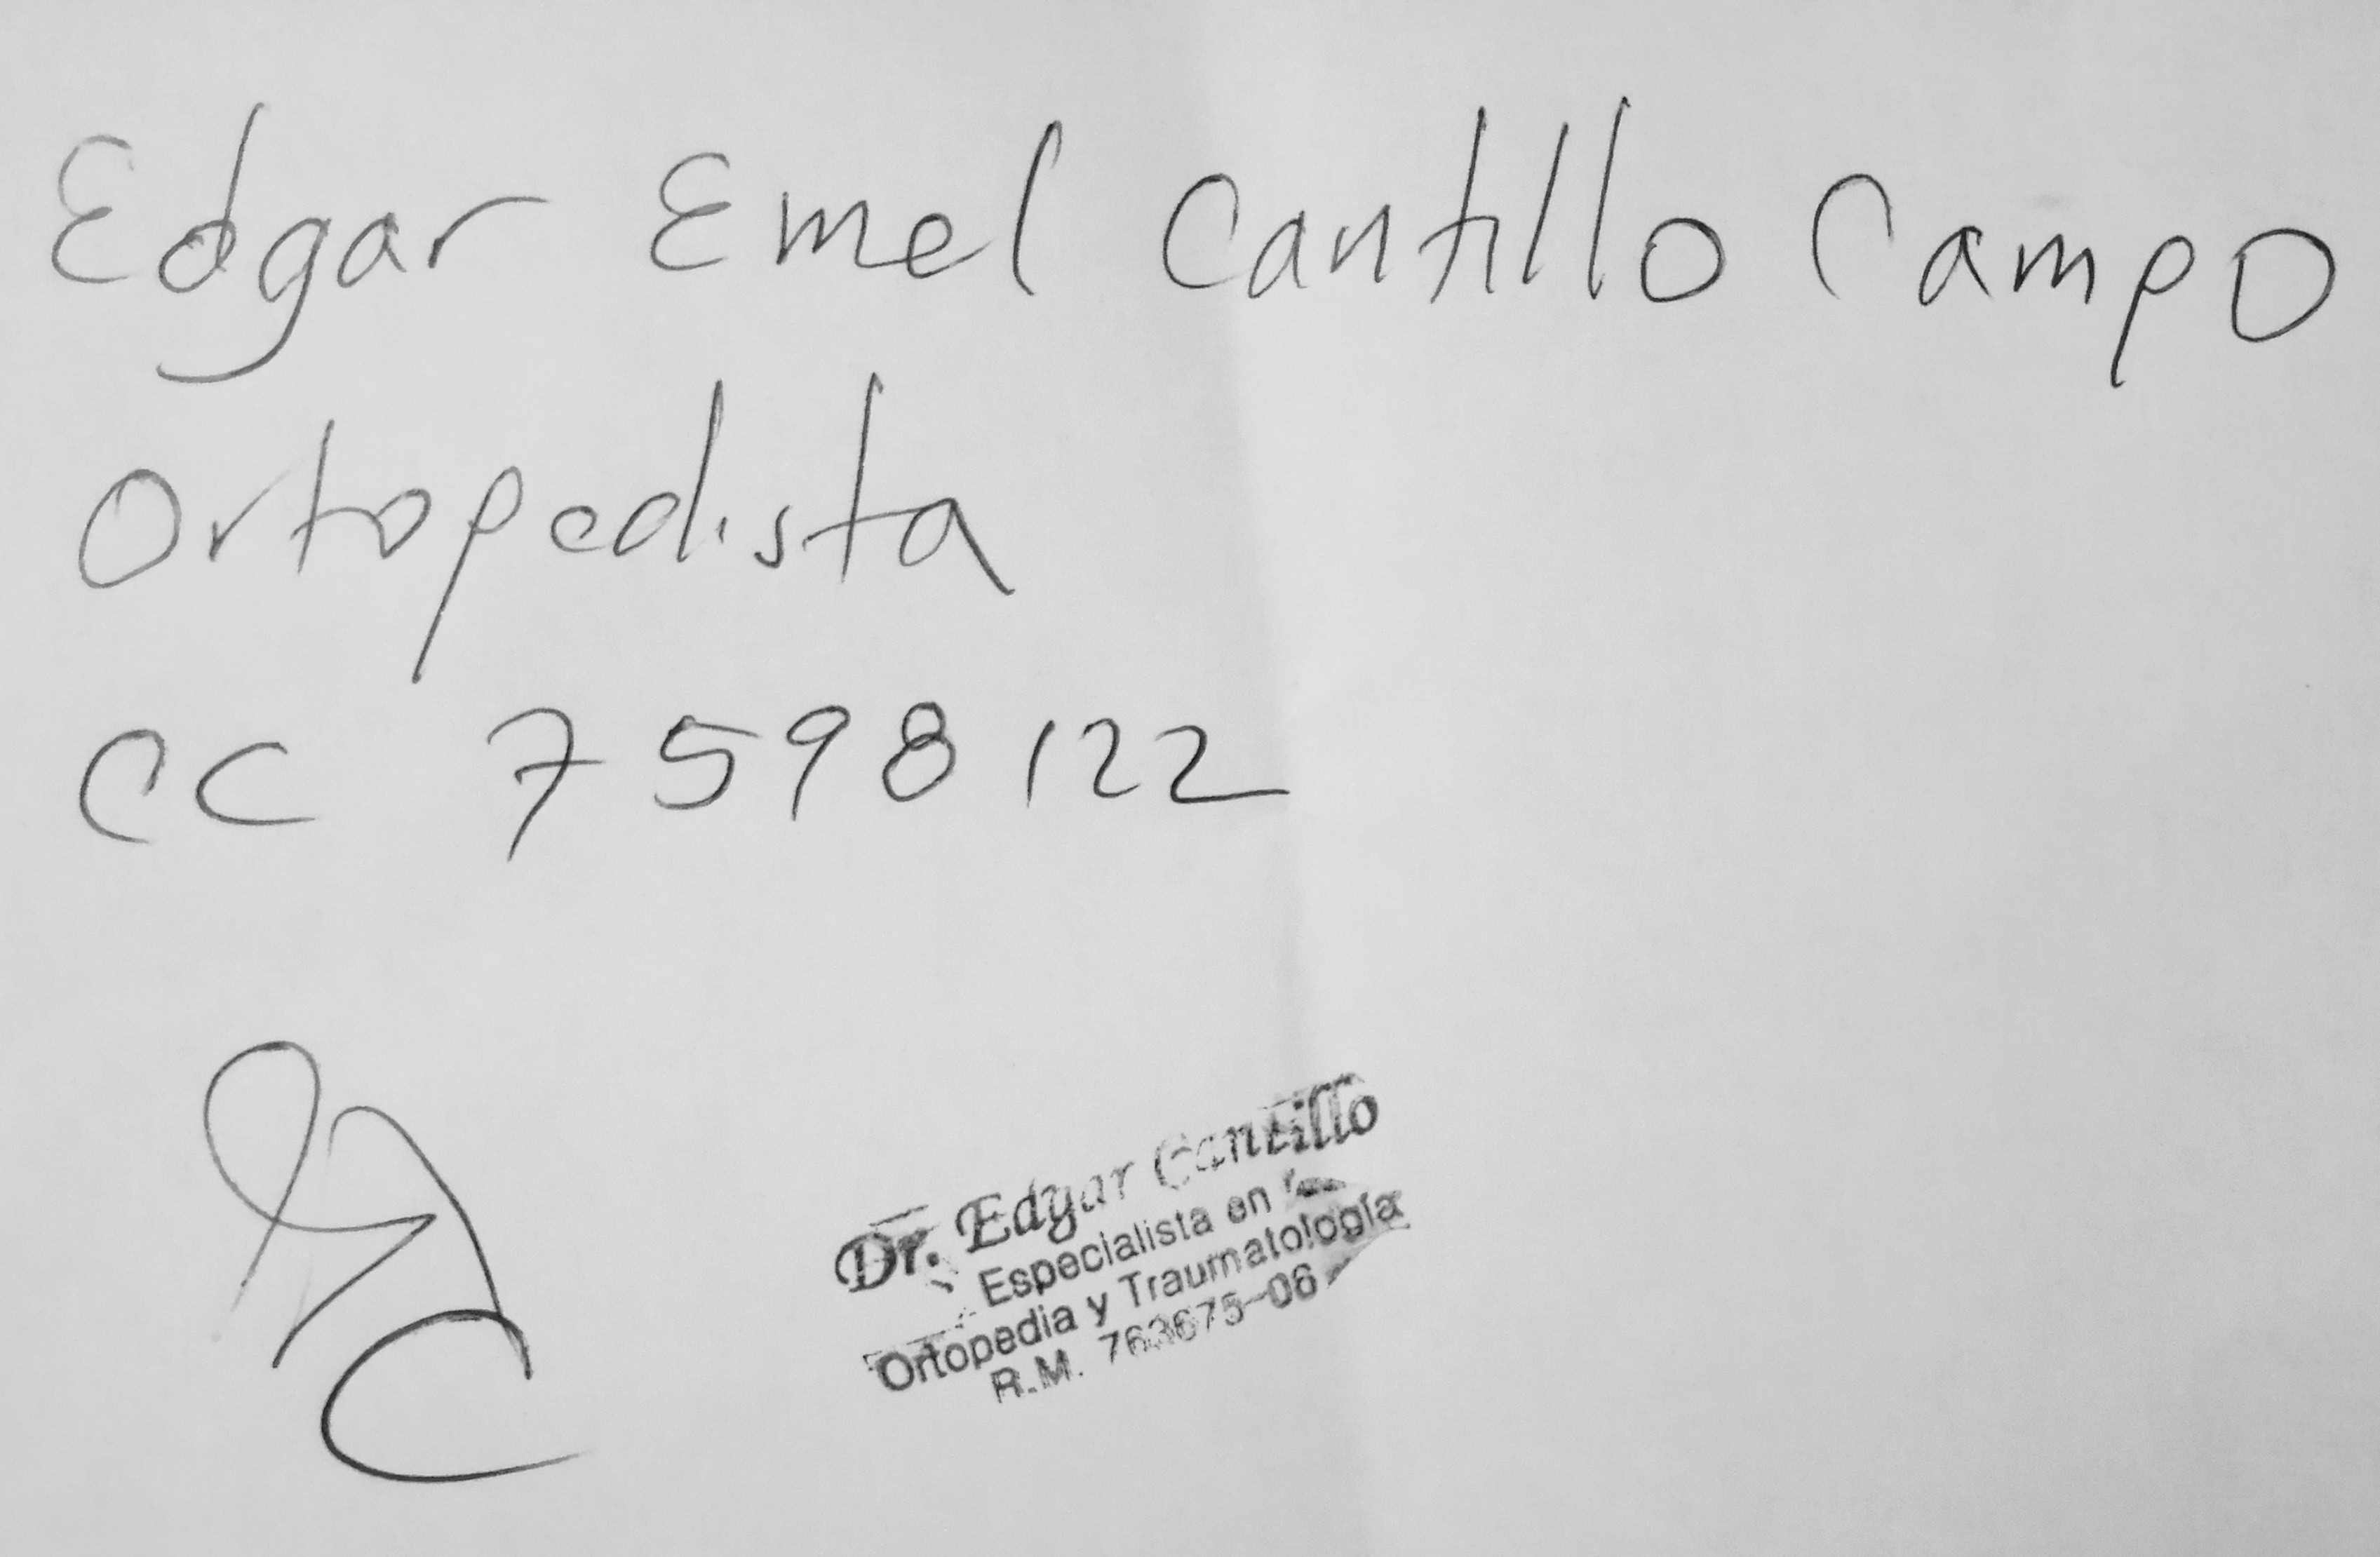 Edgar Emel Cantillo Campo
Ortopedista
CC 7598122
Dr. Edgar Cantillo
Especialista en
Ortopedia y Traumatología
R.M. 763675-06